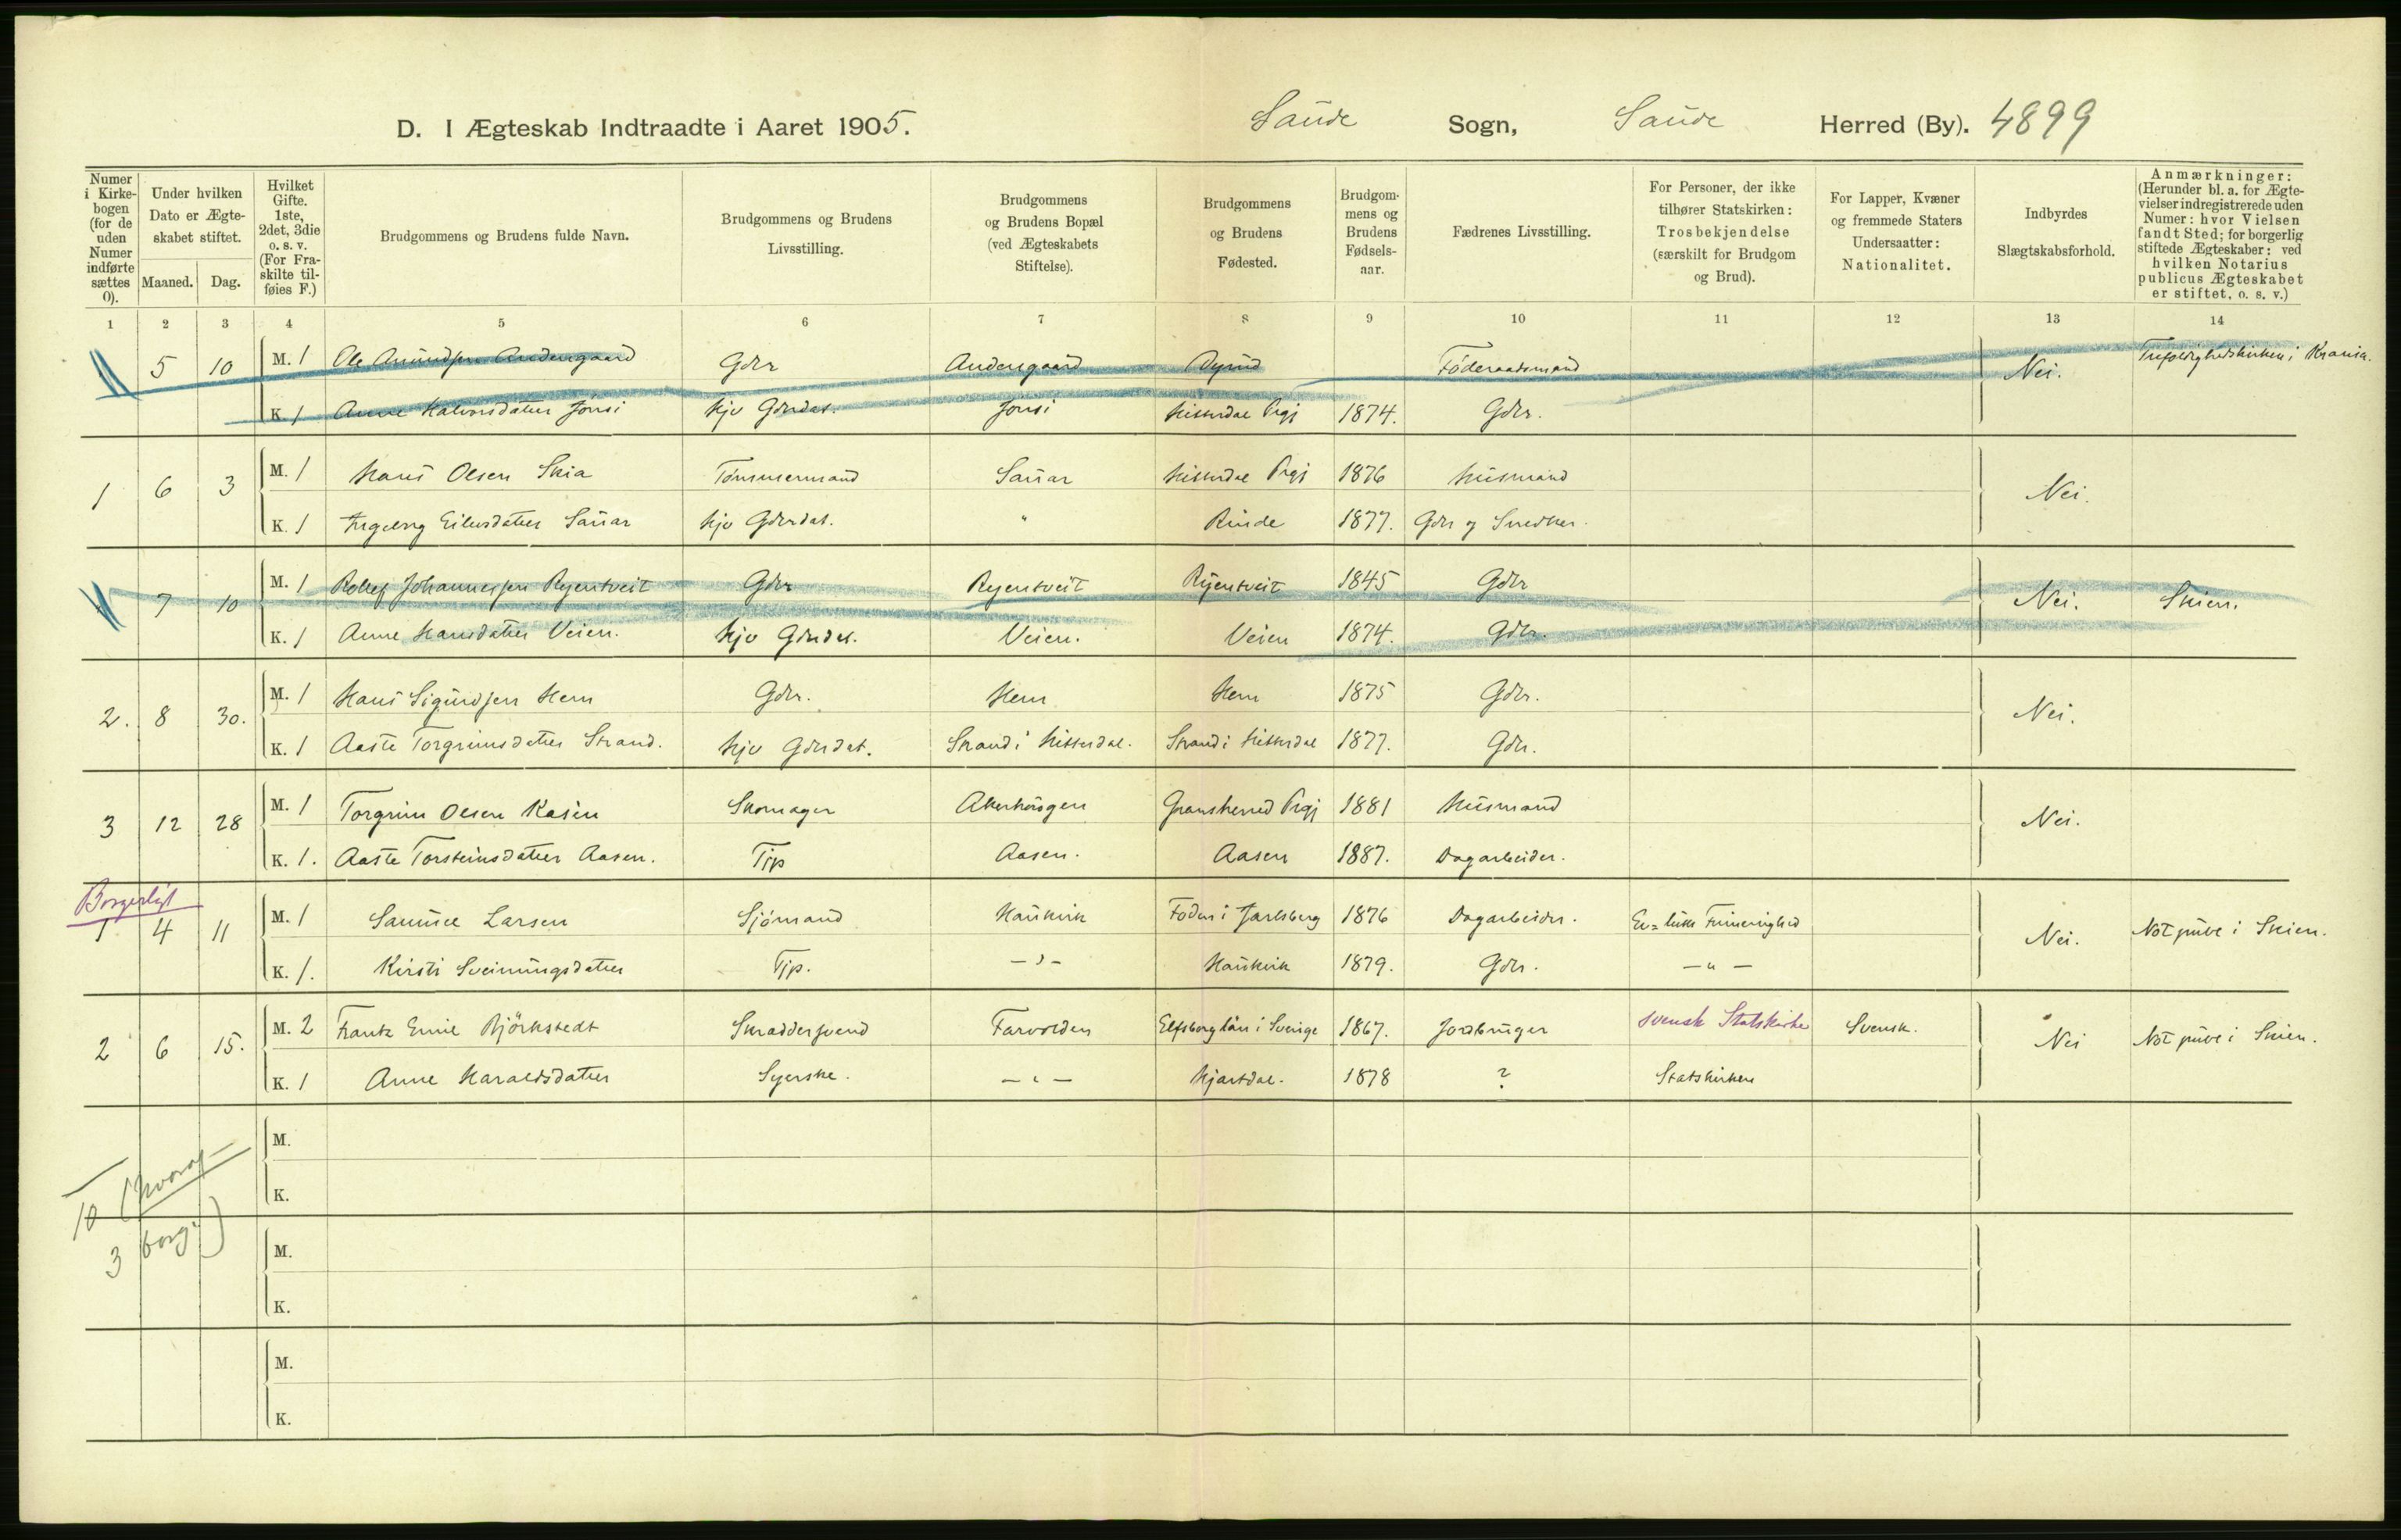 D. I Ægteskab Indtraadte i Aaret 1905. Saude Sogn, Saude Herred (By). 4899
Numer i Kirkebogen (for de uden Numer indførte sættes 0).
Under hvilken Dato er Ægteskabet stiftet.
Maaned. Dag.
Hvilket Gifte. 1ste, 2det, 3die o. s. v. (For Fraskilte tilføies F.)
Brudgommens og Brudens fulde Navn.
Brudgommens og Brudens Livsstilling.
Brudgommens og Brudens Bopæl (ved Ægteskabets Stiftelse).
Brudgommens og Brudens Fødested.
Brudgommens og Brudens Fødselsaar.
Fædrenes Livsstilling.
For Personer, der ikke tilhører Statskirken: Trosbekjendelse (særskilt for Brudgom og Brud).
For Lapper, Kvæner og fremmede Staters Undersaatter: Nationalitet.
Indbyrdes Slægtskabsforhold.
Anmærkninger: (Herunder bl. a. for Ægtevielser indregistrerede uden Numer: hvor Vielsen fandt Sted; for borgerlig stiftede Ægteskaber: ved hvilken Notarius publicus Ægteskabet er stiftet, o. s. v.)
1 2 3 4 5 6 7 8 9 10 11 12 13 14
5 10 M. 1 Ole Amundsen Andersgaard Gdr Andersgaard Føderaadsmand Nei. Trefoldighedskirken i Krania.
K. 1 Anne Halvorsdatter Jønsi Hjv Gdrdat. Jønsi Hitterdal Prgj 1874. Gdr.
1 6 3 M. 1 Hans Olsen Skia Tømmermand Sauar Hitterdal Prgj 1876 Husmand Nei.
K. 1 Ingeborg Eilevsdatter Sauar Hjv Gdrdat. " Rinde 1877. Gdr og Snedker.
7 10 M. 1 Rollef Johannessen Ryentveit Gdr Ryentveit Ryentveit 1845 Gdr Nei. Skien.
K. 1 Anne Hansdatter Veien. Hjv Gdrdat. Veien. Veien 1874. Gdr.
2. 8 30. M. 1 Hans Sigurdsen Hem Gdr. Hem Hem 1875 Gdr. Nei.
K. 1 Aaste Torgrimsdatter Strand. Hjv Gdrdat. Strand i Hitterdal. Strand i Hitterdal 1877. Gdr.
3 12 28 M. 1 Torgrim Olsen Kasin Skomager Akerhaugen Gransherred Prgj 1881 Husmand Nei.
K. 1. Aaste Torsteinsdatter Aasen. Tjp Aasen. Aasen 1887. Dagarbeider.
Borgerligt
1 4 11 M. 1 Samuel Larsen Sjömand Haukirk i Jarlsberg 1876 Dagarbeider. Ev=luth Frimenighed Nei. Not publ i Skien.
K. 1. Kirsti Sveinungsdatter Tjp. — " — Haukirk 1879. Gdr. — " —
2 6 15. M. 2 Frantz Emil Björkstedt Skraddersvend Farvolden Elfsborg län i Sverige 1867. Jordbruger svensk Statskirke Svensk. Nei Not publ i Skien.
K. 1 Anne Haraldsdatter Syerske. — " — Hjartdal. 1878 ? Statskirken
M.
K.
10 (hvoraf
3 borg.)
M.
K.
M.
K.